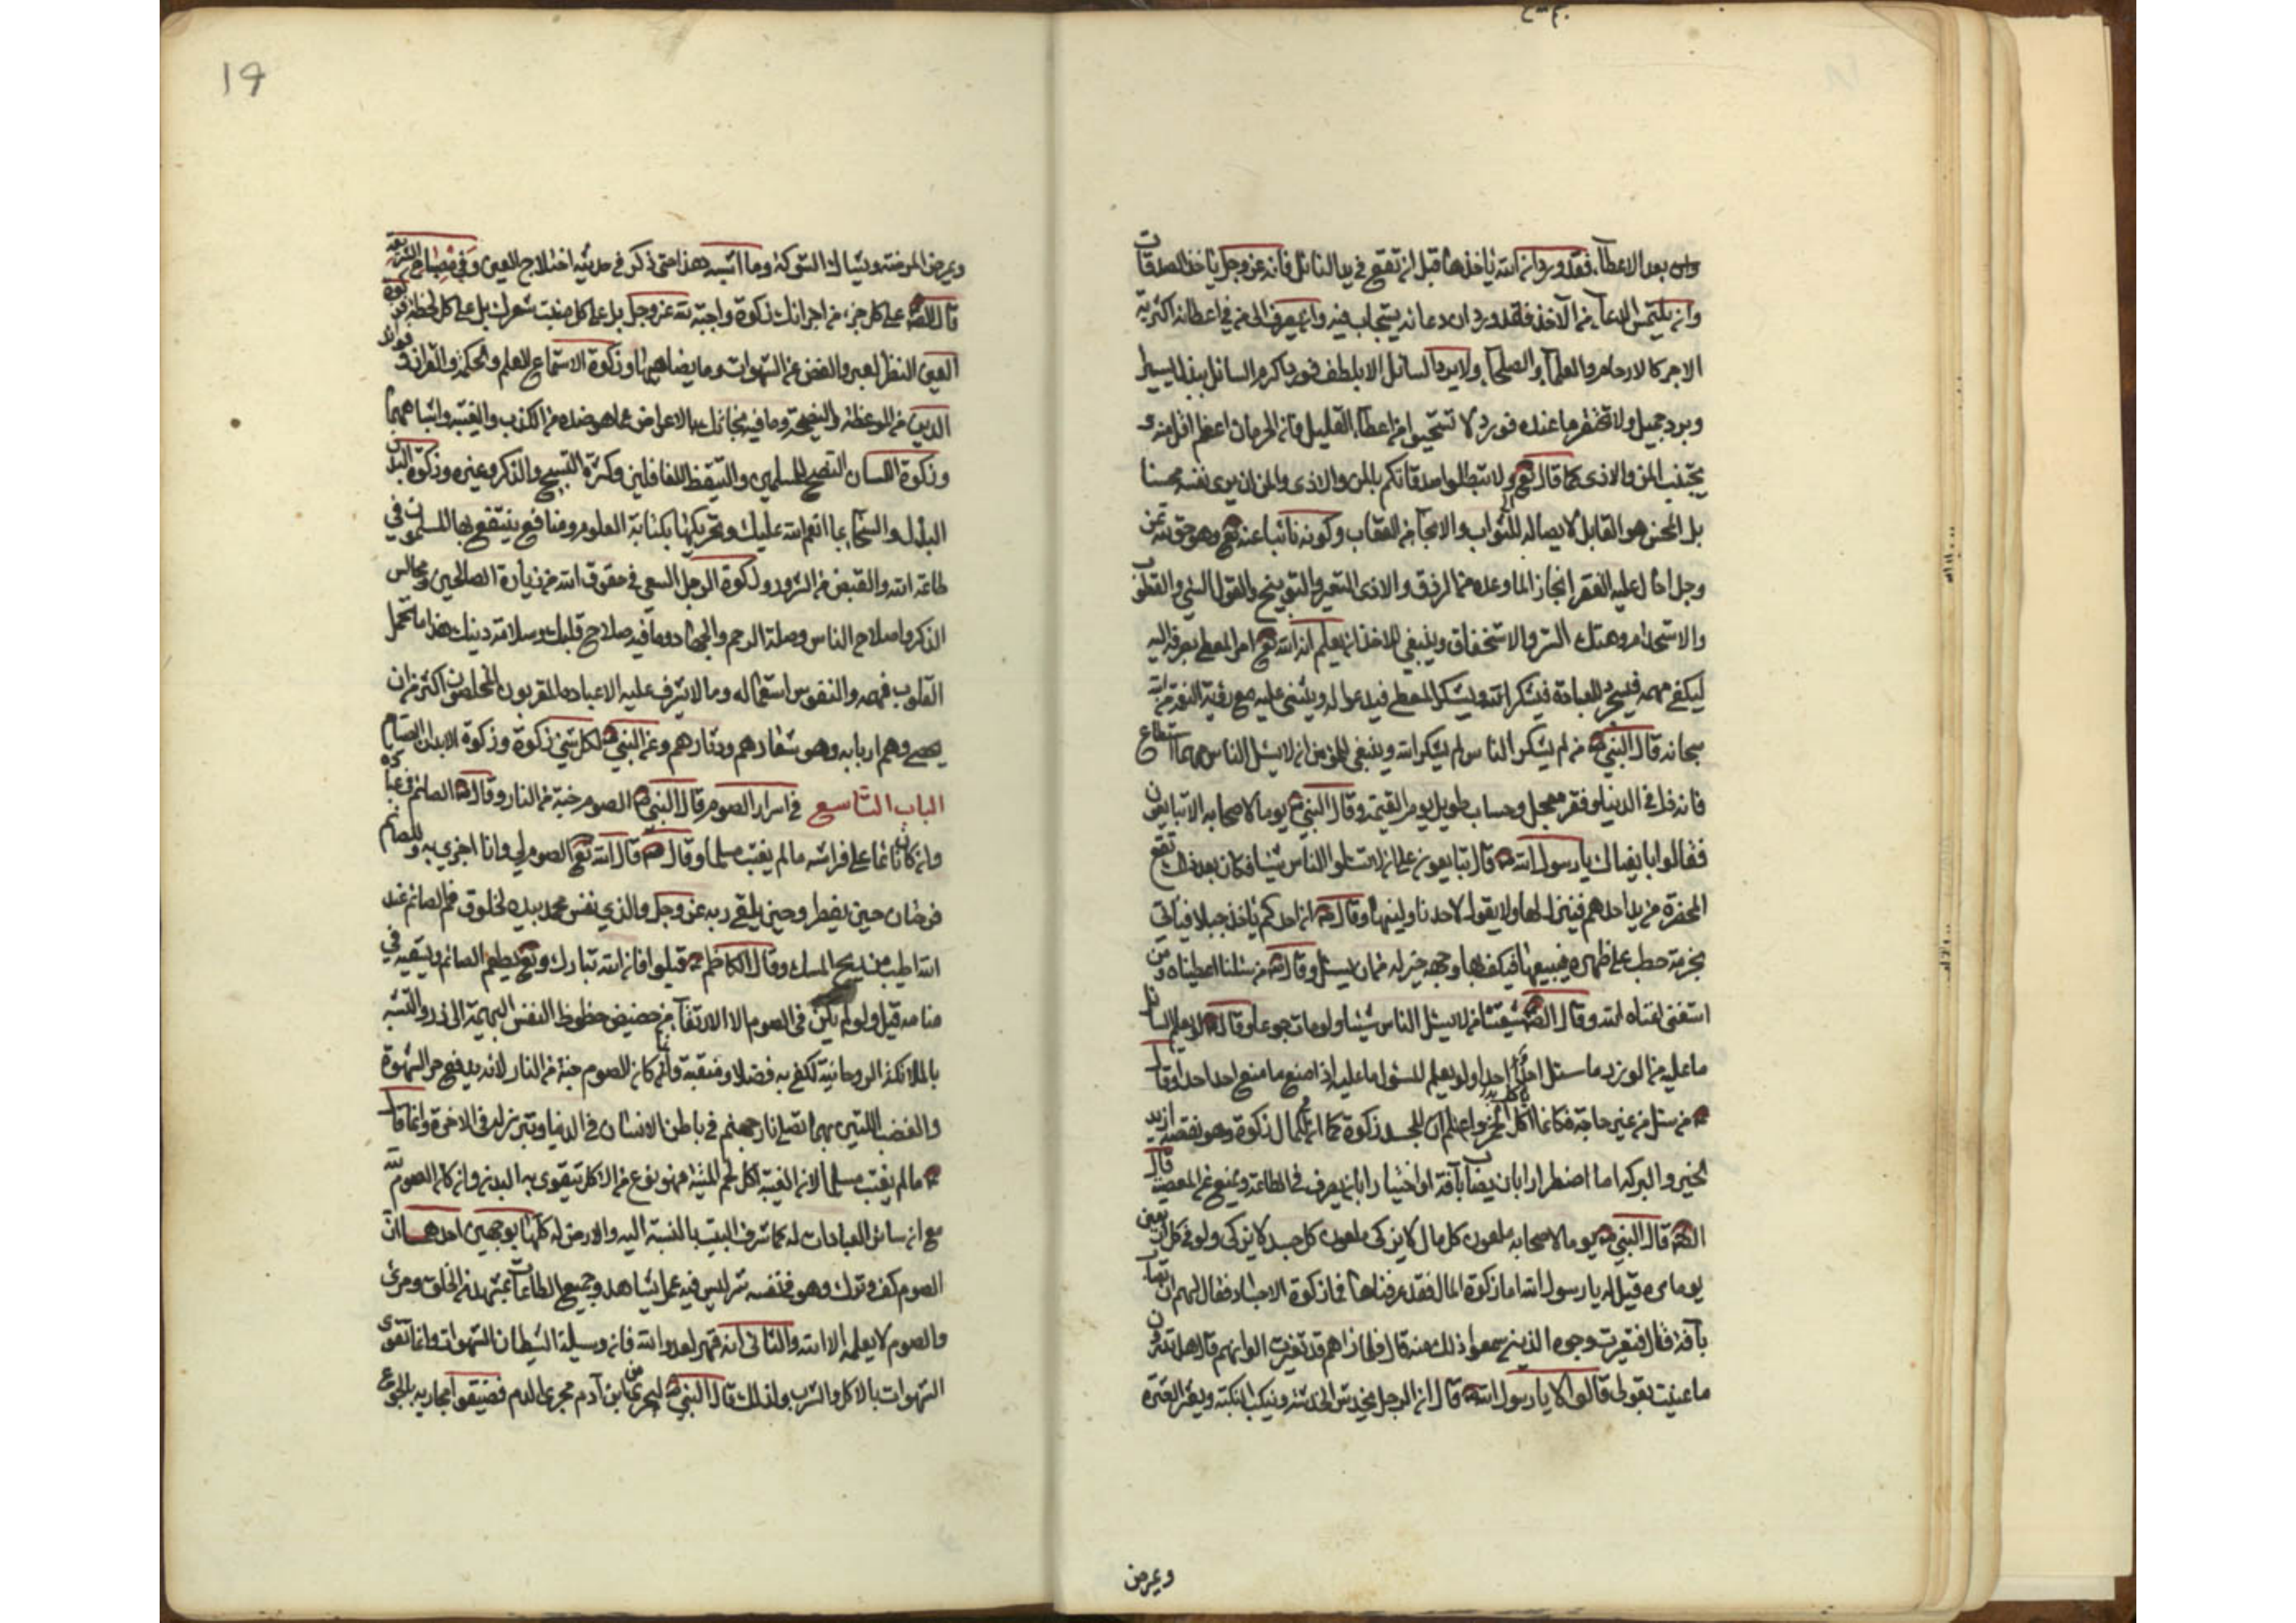 بعد الاعطآء فقد ورد ان الله ياخذها قبل ان تقع في يد السائل فانه عز وجل ياخذ الصدقات
وان يلتمس الدعآء من الآخذ فلقد ورد ان دعائه يستجاب فيه وان يصرف الى من في اعطائه اكثرية
الاجر كالارحام والعلمآء والصلحآء ولا يرد السائل الا بلطف فورد اكرم السائل ببذل اليسير
وبرد جميل ولا تحتقر ما عنده فورد لا تستحيوا من اعطآء القليل فان الحرمان اعظم اقل منه و
يجتنب المن والاذى كما قال تع ولا تبطلوا صدقاتكم بالمن والاذى والمن ان يرى نفسه محسنا
بل المحسن هو القابل لايصاله للثواب والانجآء من العقاب وكونه نائبا عنه تع وهو حق لله عز
وجل احال عليه الفقير انجازا لما وعده من الرزق والاذى التعيير والتوبيخ والقول السئ والقطوب
والاستخدام وهتك الستر والاستخفاف وينبغي للاخذ ان يعلم ان الله تع امر المعطي بصرفه اليه
ليكفى مهمه فيتجرد للعبادة فيشكر الله ويشكر المعطي فيدعوا له ويثني عليه مع رؤية النعمة من الله
سبحانه قال النبي ص من لم يشكر الناس لم يشكر الله وينبغي للمؤمن ان لا يسئل الناس مهما استطاع
فانه ذل في الدنيا وفقر معجل وحساب طويل يوم القيمة وقال النبي ص يوما لاصحابه الا تبايعون
فقالوا بايعناك يا رسول الله ص قال تبايعون على ان لا تسئلوا الناس شيئا فكان بعد ذلك تقع
المخصرة من يد احدهم فينزل لها ولا يقول لاحد ناولنيها وقال ص لو ان احدكم ياخذ حبلا فياتي
بحزمة حطب على ظهره فيبيعها فيكف بها وجهه خير له من ان يسئل وقال ص من سئلنا اعطيناه ومن
استغنى اغناه الله وقال الص شيعتنا من لا يسئل الناس شيئا ولو مات جوعا وقال لو يعلم السائل
ما عليه من الوزر ما سئل احد احدا ولو يعلم المسئول ما عليه اذا منع ما منع احد احدا وقال
من سئل من غير حاجة فكانما اكل الخمر واعلم ان للجسد زكوة كما ان للمال زكوة وهو نقصه ليزيد
الخير والبركة اما اضطرارا بان يصاب بآفة او اختيارا بان يصرف في الطاعة ويمنع عن المعصية قال
الص قال النبي ص يوما لاصحابه ملعون كل مال لا يزكى ملعون كل جسد لا يزكى ولو في كل اربعين
يوما مرة قيل له يا رسول الله اما زكوة المال فقد عرفناها فما زكوة الاجساد فقال لهم ان تصاب
بآفة قال فتغيرت وجوه الذين سمعوا ذلك منه قال فلما راهم قد تغيرت الوانهم قال هل تدرون
ما عنيت بقولي قالوا لا يا رسول الله ص قال ان الرجل يخدش الخدشة وينكب النكبة ويعثر العثرة
ويمرض
19
ويمرض المرضة ويشاك الشوكة وما اشبه هذا حتى ذكر في حديثه اختلاج العين وفي مصباح الشريعة
قال الص على كل جزء من اجزائك زكوة واجبة لله عز وجل بل على كل منبت شعرك بل على كل لحظة فزكوة
العين النظر بالعبر والغض عن الشهوات وما يضاهيها وزكوة الاستماع للعلم والحكمة والقران وفوائد
الدين من الموعظة والنصيحة وما فيه نجاتك بالاعراض عما هو ضده من الكذب والغيبة واشباههما
وزكوة اللسان النصح للمسلمين والتيقظ للغافلين وكثرة التسبيح والذكر وغيره وزكوة اليد
البذل والسخآء بما انعم الله عليك وتحريكها بكتابة العلوم ومنافع ينتفع بها المسلمون في
طاعة الله والقبض من الشرور وزكوة الرجل السعي في حقوق الله من زيارة الصالحين ومجالس
الذكر واصلاح الناس وصلة الرحم والجهاد وما فيه صلاح قلبك وسلامة دينك هذا ما تحمل
القلوب فهمه والنفوس استعماله وما لا يشرف عليه الا عباده المقربون المخلصون اكثر من ان
يحصى وهم اربابه وهو شعارهم ودثارهم وعن النبي ص لكل شئ زكوة وزكوة الابدان الصيام
الباب التاسع في اسرار الصوم قال النبي ص الصوم جنة من النار وقال ص الصائم في عبادة
وان كان نائما على فراشه ما لم يغتب مسلما وقال ص قال الله تع الصوم لي وانا اجزي به وللصائم
فرحتان حين يفطر وحين يلقى ربه عز وجل والذي نفس محمد بيده لخلوق فم الصائم عند
الله اطيب من ريح المسك وقال الكاظم قيلوا فان الله تبارك وتع يطعم الصائم ويسقيه في
منامه قيل ولو لم يكن في الصوم الا الارتقآء من حضيض حظوظ النفس البهيمية الى ذروة التشبه
بالملائكة الروحانية لكفى به فضلا ومنقبة وانما كان الصوم جنة من النار لانه يدفع حر الشهوة
والغضب اللتين بهما تصلى نار جهنم في باطن الانسان في الدنيا وتبرز له في الاخرة وانما قال
ص ما لم يغتب مسلما لان الغيبة اكل لحم الميتة فهو نوع من الاكل يتقوى به البدن وان كان الصوم لله
مع ان سائر العبادات له كما شرف البيت بالنسبة اليه والارض له كلها بوجهين احدهما ان
الصوم كف وترك وهو في نفسه سر ليس فيه عمل يشاهد وجميع الطاعات بمشهد من الخلق ومرئ
والصوم لا يعلمه الا الله والثاني انه قهر لعدو الله فان وسيلة الشيطان الشهوات وانما تقوى
الشهوات بالاكل والشرب ولذلك قال النبي ص ليجري من ابن آدم مجرى الدم فضيقوا مجاريه بالجوع